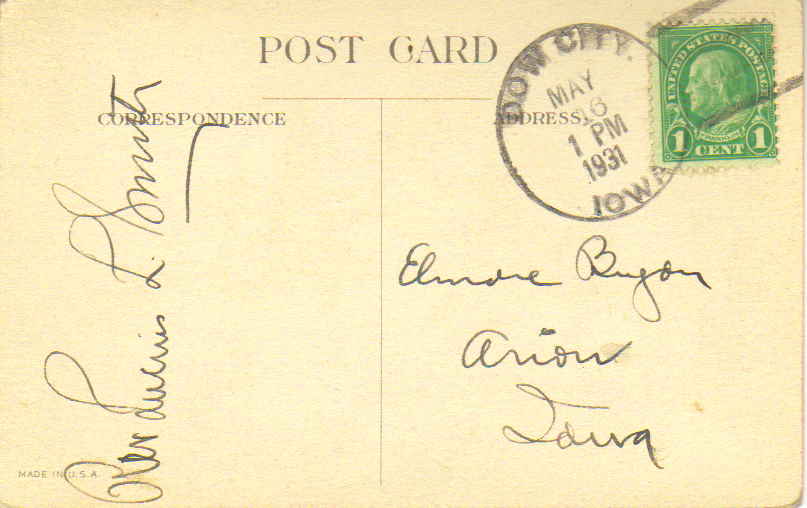 POST CARD
CORRESPONDENCE
ADDRESS
DOW CITY.
MAY
16
1 PM
1931
IOWA
UNITED STATES POSTAGE
1 CENT 1
Elmore Bryan
Arion
Iowa
Rev Lucius L. Smith
MADE IN U.S.A.